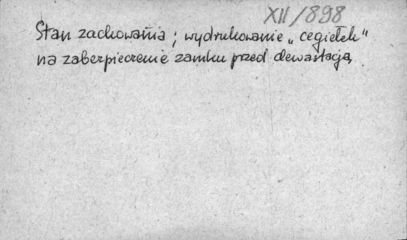 XII/898
Stan zachowania; wydrukowanie „cegiełek"
na zabezpieczenie zamku przed dewastacją